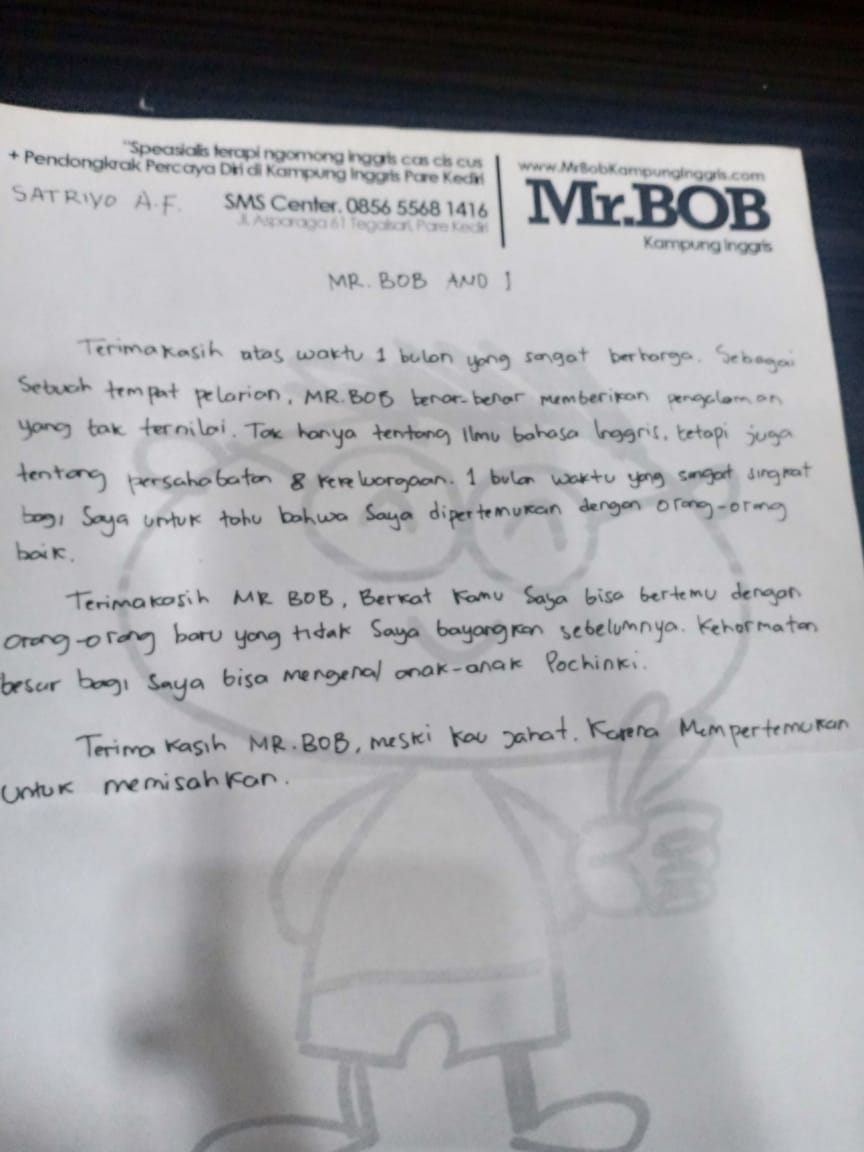 "Speasialis terapi ngomong inggris cas cis cus
+ Pendongkrak Percaya Diri di Kampung Inggris Pare Kediri
SATRIYO A.F.
SMS Center. 0856 5568 1416
Jl. Asparaga 61 Tegalsari, Pare Kediri
www.MrBobKampungInggris.com
Mr.BOB
Kampung Inggris
MR. BOB AND I
Terimakasih atas waktu 1 bulan yang sangat berharga. Sebagai
Sebuah tempat pelarian, MR.BOB benar-benar memberikan pengalaman
yang tak ternilai. Tak hanya tentang Ilmu bahasa Inggris, tetapi juga
tentang persahabatan & kekeluargaan. 1 bulan waktu yang sangat singkat
bagi Saya untuk tahu bahwa Saya dipertemukan dengan orang-orang
baik.
Terimakasih MR BOB, Berkat Kamu Saya bisa bertemu dengan
orang-orang baru yang tidak Saya bayangkan sebelumnya. Kehormatan
besar bagi Saya bisa mengenal anak-anak Pochinki.
Terima kasih MR.BOB, meski kau Jahat. Karena Mempertemukan
untuk memisahkan.